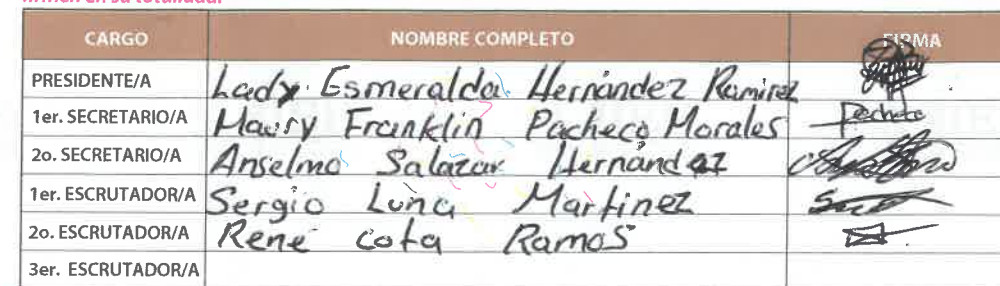 firman en su totalidad.
CARGO NOMBRE COMPLETO FIRMA
PRESIDENTE/A Lady Esmeralda Hernández Ramirez
1er. SECRETARIO/A Maury Franklin Pacheco Morales Pacheco
2o. SECRETARIO/A Anselmo Salazar Hernandez
1er. ESCRUTADOR/A Sergio Luna Martinez
2o. ESCRUTADOR/A René cota Ramos
3er. ESCRUTADOR/A